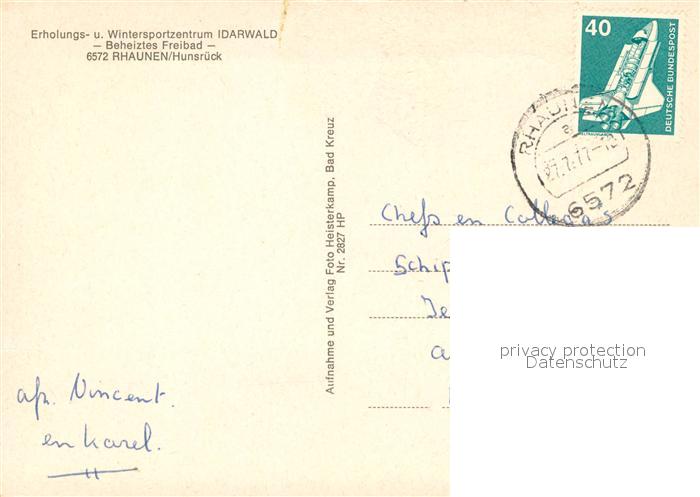 Erholungs- u. Wintersportzentrum IDARWALD
— Beheiztes Freibad —
6572 RHAUNEN/Hunsrück
40
DEUTSCHE BUNDESPOST
RHAUNEN
a
27.7.77-18
6572
Aufnahme und Verlag Foto Heisterkamp, Bad Kreuz
Nr. 2827 HP
Chefs en Collega's
Schip
privacy protection
Datenschutz
afz. Vincent.
en Karel.